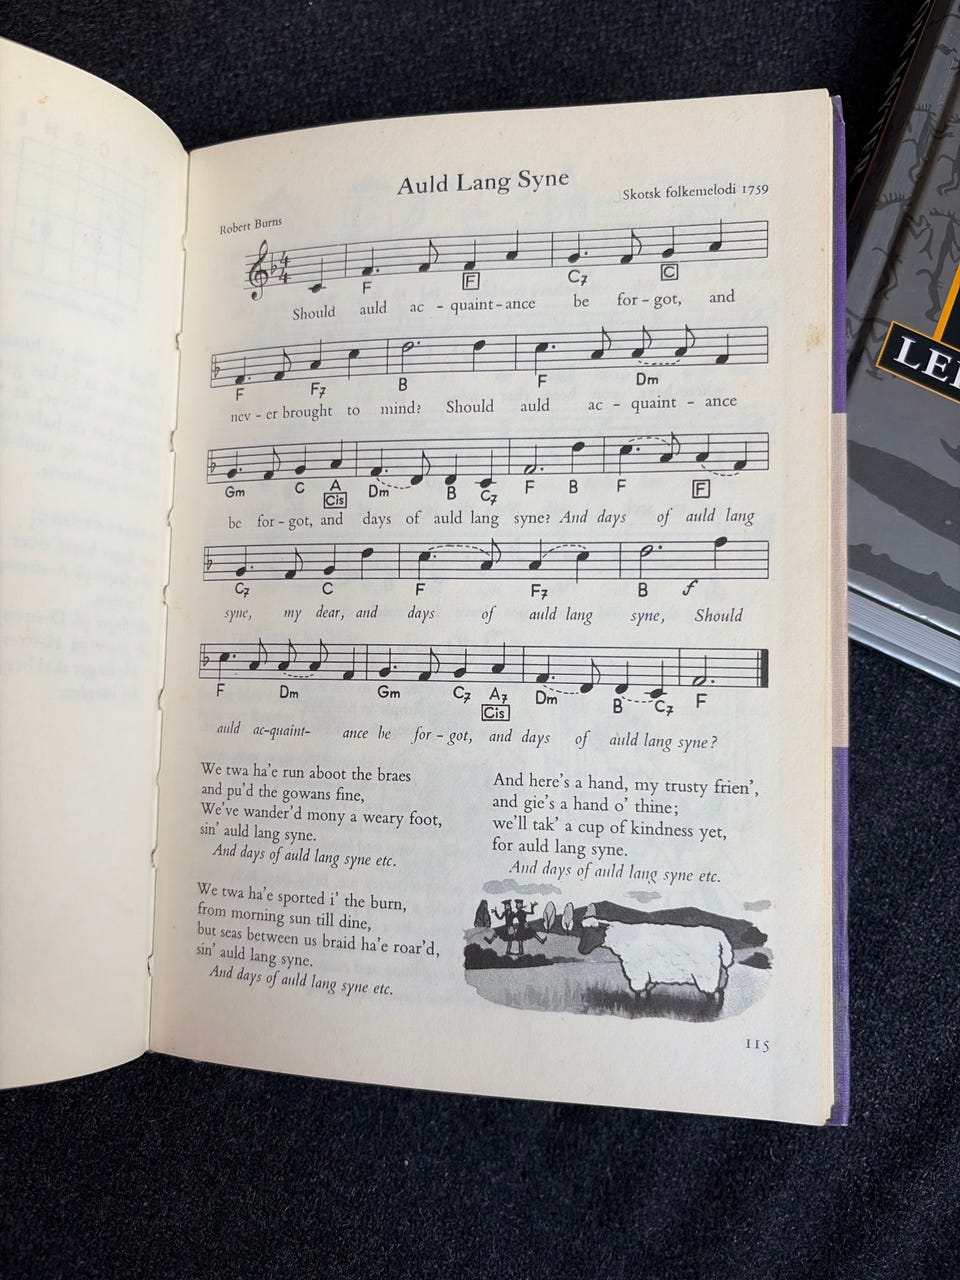 Auld Lang Syne
Skotsk folkemelodi 1759
Robert Burns
F F C7 C
Should auld ac - quaint - ance be for - got, and
F F7 B F Dm
nev - er brought to mind? Should auld ac - quaint - ance
Gm C A Dm B C7 F B F F
Cis
be for - got, and days of auld lang syne? And days of auld lang
C7 C F F7 B f
syne, my dear, and days of auld lang syne, Should
F Dm Gm C7 A7 Dm B C7 F
Cis
auld ac-quaint- ance be for - got, and days of auld lang syne?
We twa ha'e run aboot the braes
and pu'd the gowans fine,
We've wander'd mony a weary foot,
sin' auld lang syne.
And days of auld lang syne etc.
We twa ha'e sported i' the burn,
from morning sun till dine,
but seas between us braid ha'e roar'd,
sin' auld lang syne.
And days of auld lang syne etc.
And here's a hand, my trusty frien',
and gie's a hand o' thine;
we'll tak' a cup of kindness yet,
for auld lang syne.
And days of auld lang syne etc.
115